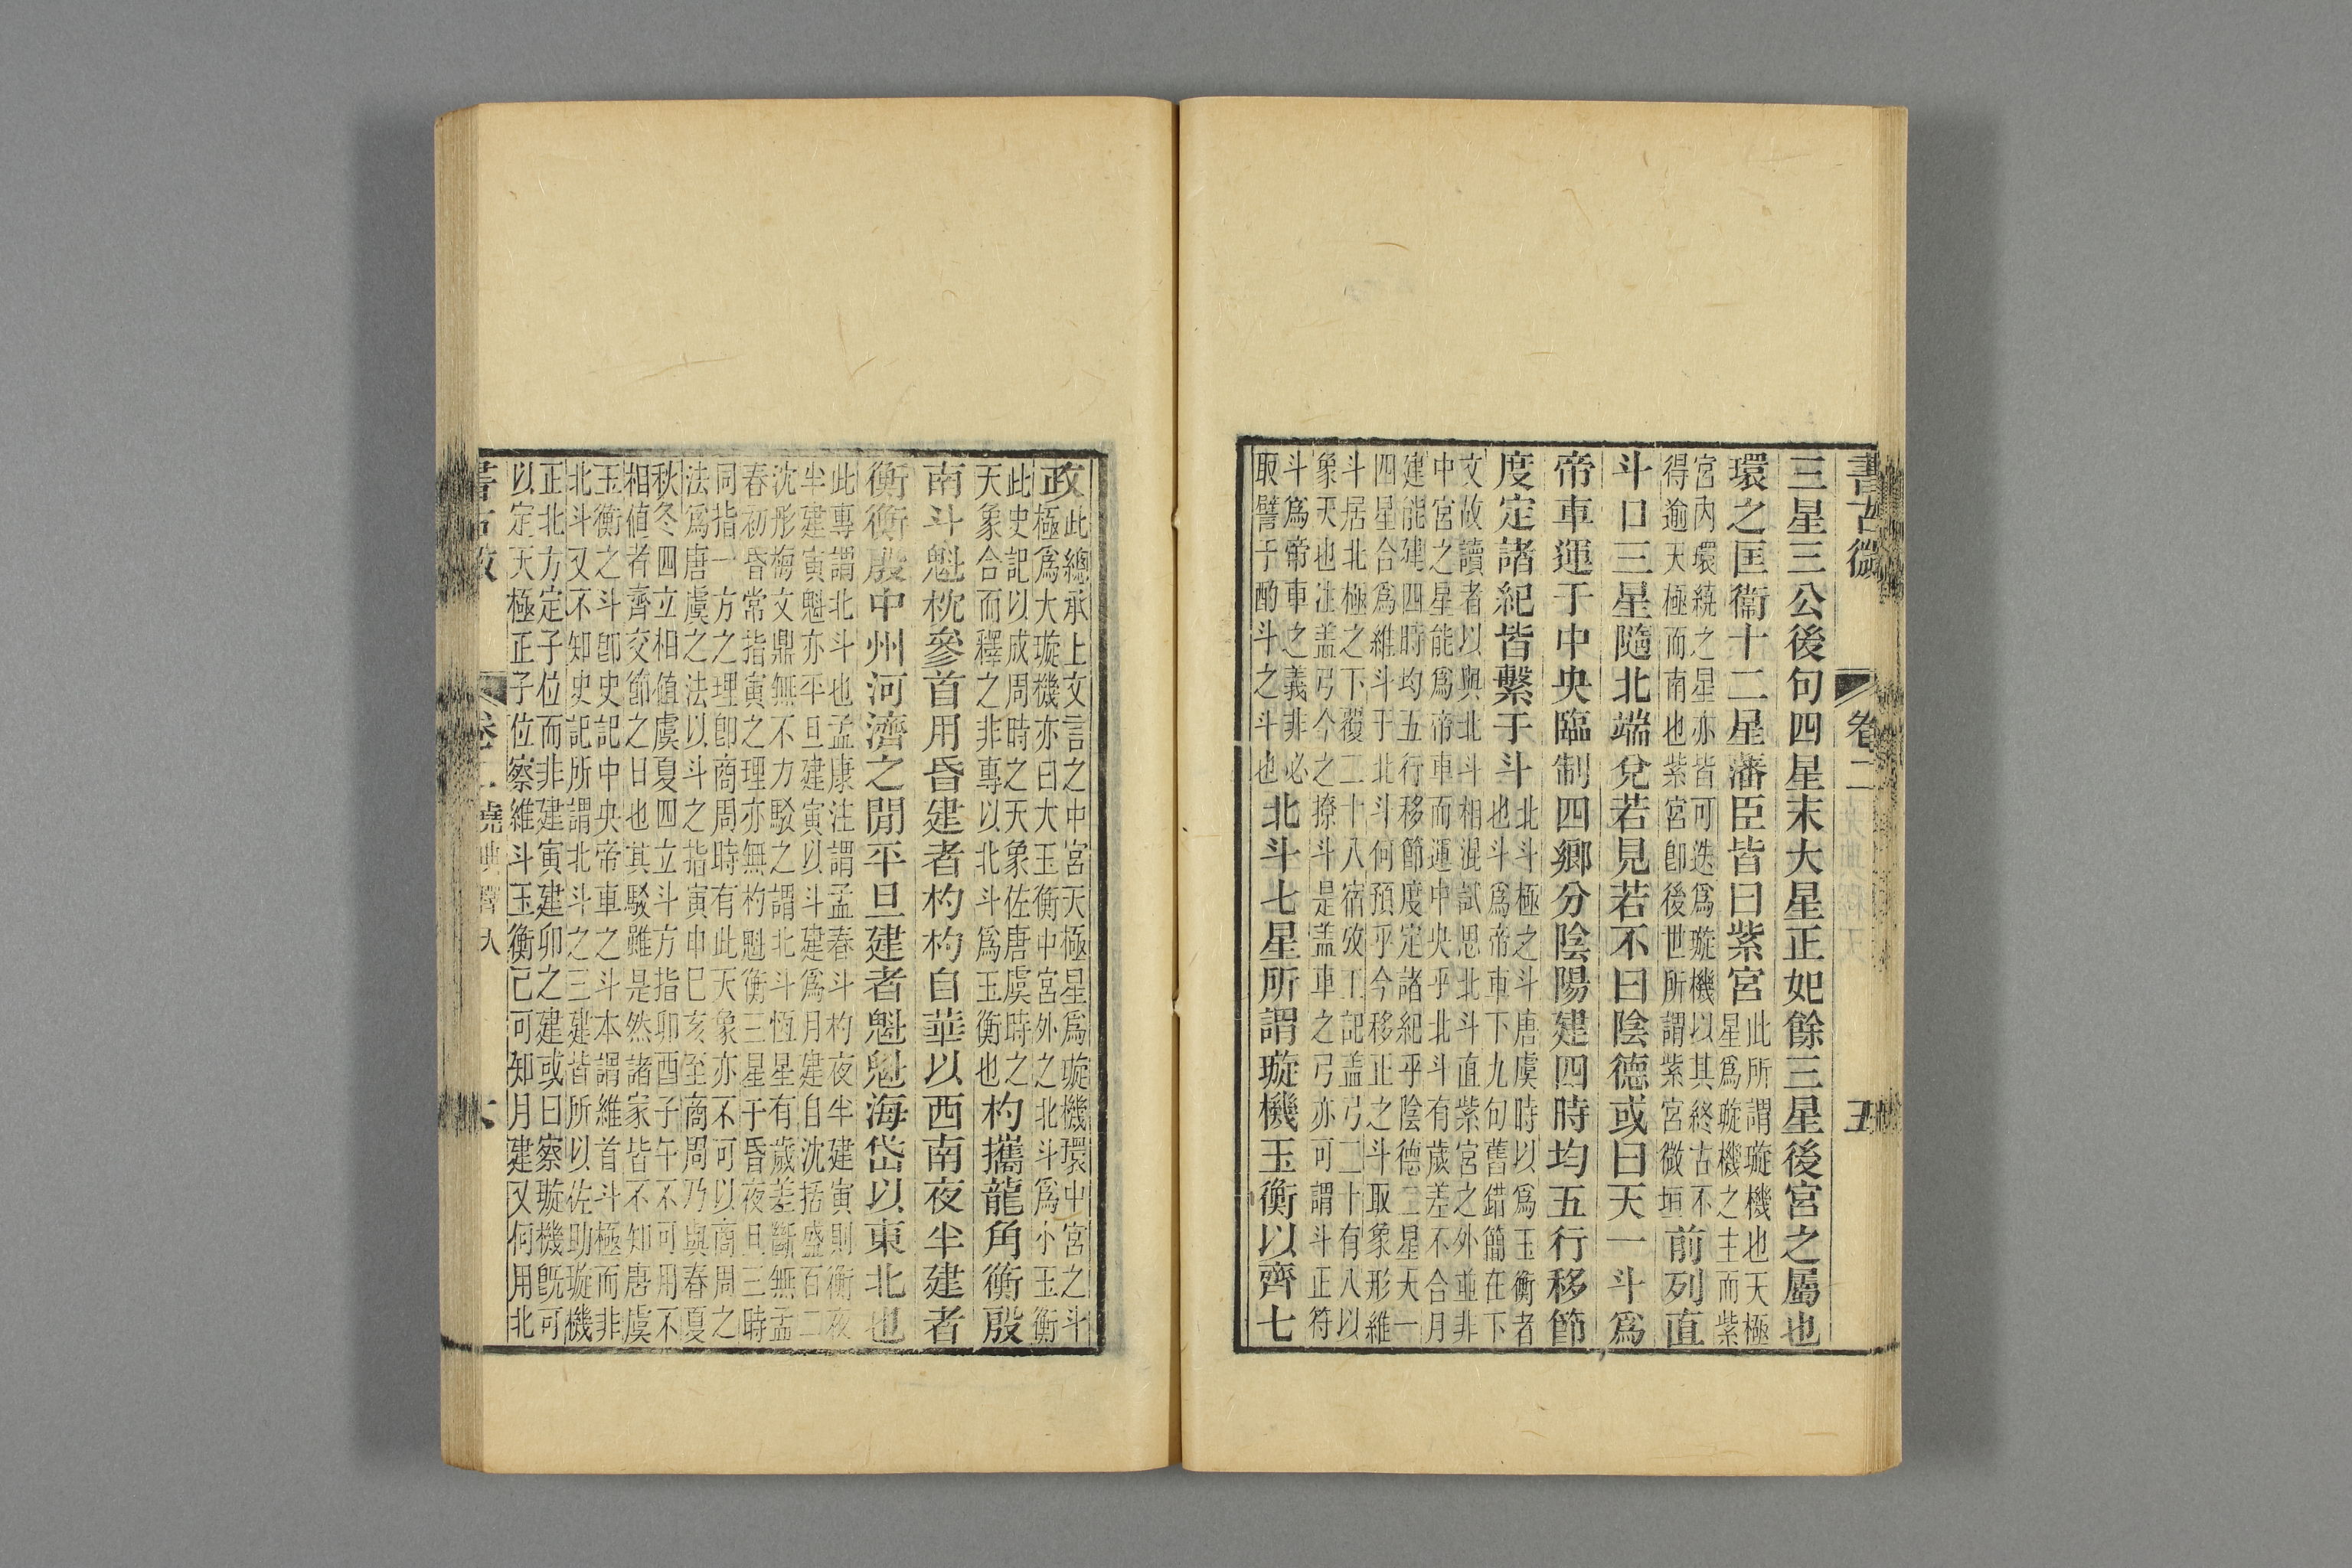 書古微
卷二
五
三星三公後句四星末大星正妃餘三星後宮之屬也
環之匡衞十二星藩臣皆曰紫宮
此所謂璇機也天極
星爲璇機之主而紫
宮內環繞之星亦皆可迭爲璇機以其終古不
得逾天極而南也紫宮卽後世所謂紫宮微垣
前列直
斗口三星隨北端兌若見若不曰陰德或曰天一斗爲
帝車運于中央臨制四鄉分陰陽建四時均五行移節
度定諸紀皆繫于斗
北斗極之斗唐虞時以爲玉衡者
也斗爲帝車下九句舊錯簡在下
文故讀者以與北斗相混試思北斗直紫宮之外並非
中宮之星能爲帝車而運中央乎北斗有歲差不合月
建能建四時均五行移節度定諸紀乎陰德三星天一
四星合爲維斗于北斗何預乎今移正之斗取象形維
斗居北極之下覆二十八宿攷工記盖弓二十有八以
象天也注盖弓今之撩斗是盖車之弓亦可謂斗正符
斗爲帝車之義非必
取譬于酌斗之斗也
北斗七星所謂璇機玉衡以齊七
政
此總承上文言之中宮天極星爲璇機環中宮之斗
極爲大璇機亦曰大玉衡中宮外之北斗爲小玉衡
此史記以成周時之天象佐唐虞時之
天象合而釋之非專以北斗爲玉衡也
杓攜龍角衡殷
南斗魁枕參首用昏建者杓杓自華以西南夜半建者
衡衡殷中州河濟之閒平旦建者魁魁海岱以東北也
此專謂北斗也孟康注謂孟春斗杓夜半建寅則衡夜
半建寅魁亦平旦建寅以斗建爲月建自沈括盛百二
沈彤梅文鼎無不力駁之謂北斗恆星有歲差斷無孟
春初昏常指寅之理亦無杓魁衡三星于昏夜旦三時
同指一方之理卽商周時有此天象亦不可以商周之
法爲唐虞之法以斗之指寅申巳亥至商周乃與春夏
秋冬四立相值虞夏四立斗方指卯酉子午不可用不
相値者齊交節之日也其駁雖是然諸家皆不知唐虞
玉衡之斗卽史記中央帝車之斗本謂維首斗極而非
北斗又不知史記所謂北斗之三建皆所以佐助璇機
正北方定子位而非建寅建卯之建或曰察璇機旣可
以定天極正子位察維斗玉衡已可知月建又何用北